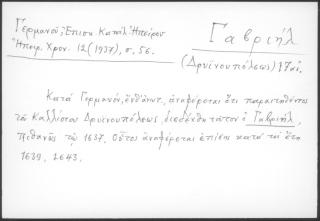 Γερμανοῦ, Ἐπισκ. Κατάλ. Ἠπείρου
Ἠπειρ. Χρον. 12 (1937), σ. 56.
Γαβριήλ
(Δρυϊνουπόλεως) 17 αἰ.
Κατὰ Γερμανόν, ἔνθ' ἀνωτ., ἀναφέρεται ὅτι παραιτηθέντος
τοῦ Καλλίστου Δρυϊνουπόλεως, διεδέχθη τοῦτον ὁ Γαβριήλ,
πιθανῶς τῷ 1637. Οὗτος ἀναφέρεται ἐπίσης κατὰ τὰ ἔτη
1639, 1643.